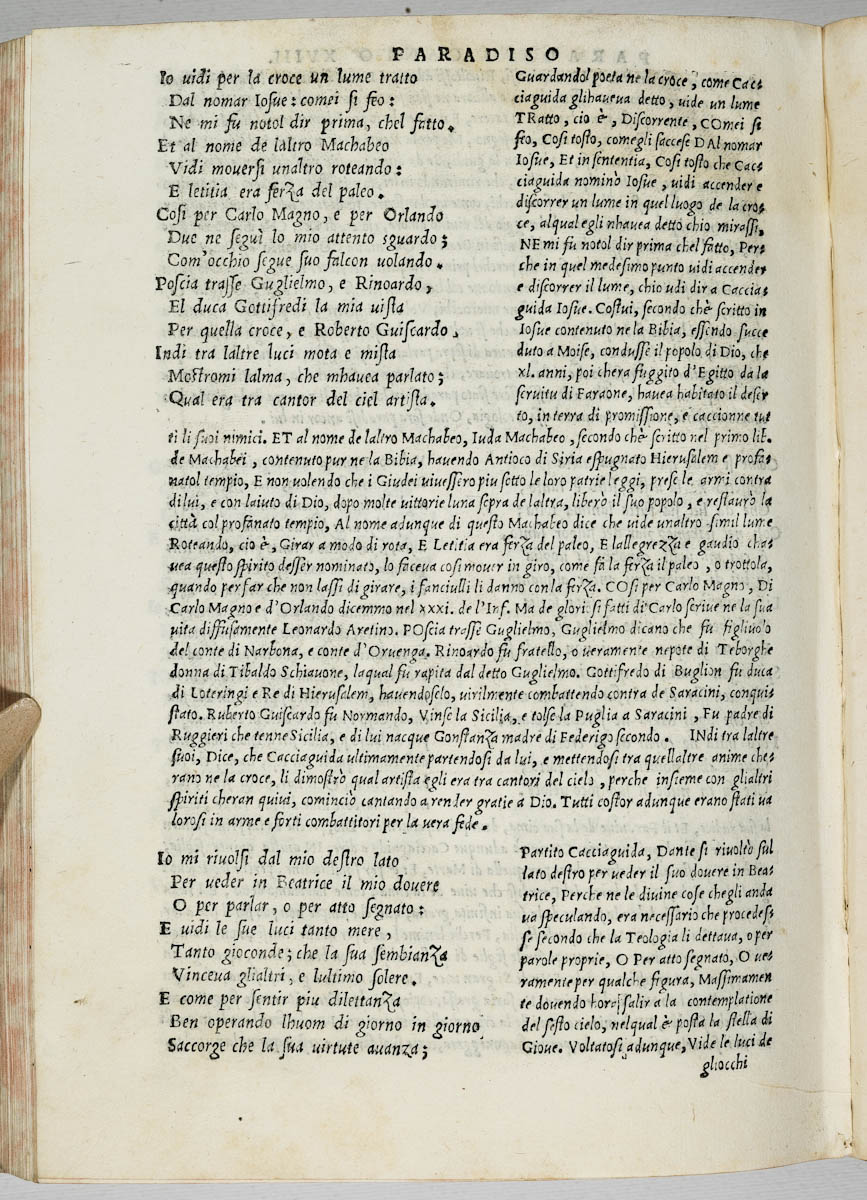 PARADISO
Io uidi per la croce un lume tratto
Dal nomar Iosue: comei si feo:
Ne mi fu notol dir prima, chel fatto.
Et al nome de laltro Machabeo
Vidi mouersi unaltro roteando:
E letitia era ferza del paleo.
Cosi per Carlo Magno, e per Orlando
Due ne seguì lo mio attento sguardo;
Com'occhio segue suo falcon uolando.
Poscia trasse Guglielmo, e Rinoardo,
El duca Gottifredi la mia uista
Per quella croce, e Roberto Guiscardo.
Indi tra laltre luci mota e mista
Mostromi lalma, che mhauea parlato;
Qual era tra cantor del ciel artista.
Guardandol poeta ne la croce, come Cac-
ciaguida glihaueua detto, uide un lume
TRatto, cio è, Discorrente, COmei si
feo, Cosi tosto, comegli facesse DAl nomar
Iosue, Et in sententia, Cosi tosto che Cac-
ciaguida nominò Iosue, uidi accender e
discorrer un lume in quel luogo de la cro-
ce, alqual egli nhauea detto chio mirassi,
NE mi fu notol dir prima chel fatto, Per-
che in quel medesimo punto uidi accender
e discorrer il lume, chio udi dir a Caccia-
guida Iosue. Costui, secondo chè scritto in
Iosue contenuto ne la Bibia, essendo succe
duto a Moise, condusse il popolo di Dio, che
xl. anni, poi chera fuggito d'Egitto da la
seruitu di Faraone, hauea habitato il deser
to, in terra di promissione, e caccionne tut
ti li suoi nimici. ET al nome de laltro Machabeo, Iuda Machabeo, secondo chè scritto nel primo lib.
de Machabei, contenuto pur ne la Bibia, hauendo Antioco di Siria espugnato Hierusalem e profa-
natol tempio, E non uolendo che i Giudei uiuessero piu sotto le loro patrie leggi, prese le armi contra
di lui, e con laiuto di Dio, dopo molte uittorie luna sopra de laltra, liberò il suo popolo, e restaurò la
città col profanato tempio, Al nome adunque di questo Machabeo dice che uide unaltro simil lume
Roteando, cio è, Girar a modo di rota, E Letitia era ferza del paleo, E lallegrezza e gaudio cha-
uea questo spirito desser nominato, lo faceua cosi mouer in giro, come fa la ferza il paleo, o trottola,
quando per far che non lassi di girare, i fanciulli li danno con la ferza. COsi per Carlo Magno, Di
Carlo Magno e d'Orlando dicemmo nel xxxi. de l'Inf. Ma de gloriosi fatti di Carlo scriue ne la sua
uita diffusamente Leonardo Aretino. POscia trasse Guglielmo, Guglielmo dicano che fu figliuolo
del conte di Narbona, e conte d'Oruenga. Rinoardo fu fratello, o ueramente nepote di Teborghe
donna di Tibaldo Schiauone, laqual fu rapita dal detto Guglielmo. Gottifredo di Buglion fu duca
di Loteringi e Re di Hierusalem, hauendoselo, uirilmente combattendo contra de Saracini, conqui
stato. Ruberto Guiscardo fu Normando, Vinse la Sicilia, e tolse la Puglia a Saracini, Fu padre di
Ruggieri che tenne Sicilia, e di lui nacque Gonstanza madre di Federigo secondo. INdi tra laltre
suoi, Dice, che Cacciaguida ultimamente partendosi da lui, e mettendosi tra quellaltre anime che-
rano ne la croce, li dimostrò qual artista egli era tra cantori del cielo, perche insieme con glialtri
spiriti cheran quiui, cominciò cantando a render gratie a Dio. Tutti costor adunque erano stati ua
lorosi in arme e forti combattitori per la uera fede.
Io mi riuolsi dal mio destro lato
Per ueder in Beatrice il mio douere
O per parlar, o per atto segnato:
E uidi le sue luci tanto mere,
Tanto gioconde; che la sua sembianza
Vinceua glialtri, e lultimo solere.
E come per sentir piu dilettanza
Ben operando lhuom di giorno in giorno
Saccorge che la sua uirtute auanza;
Partito Cacciaguida, Dante si riuoltò sul
lato destro per ueder il suo douere in Bea-
trice, Perche ne le diuine cose chegli anda
ua speculando, era necessario che procedes-
se secondo che la Teologia li dettaua, o per
parole proprie, O Per atto segnato, O ue-
ramente per qualche figura, Massimamen
te douendo hora salir a la contemplatione
del sesto cielo, nelqual è posta la stella di
Gioue. Voltatosi adunque, Vide le luci de
gliocchi